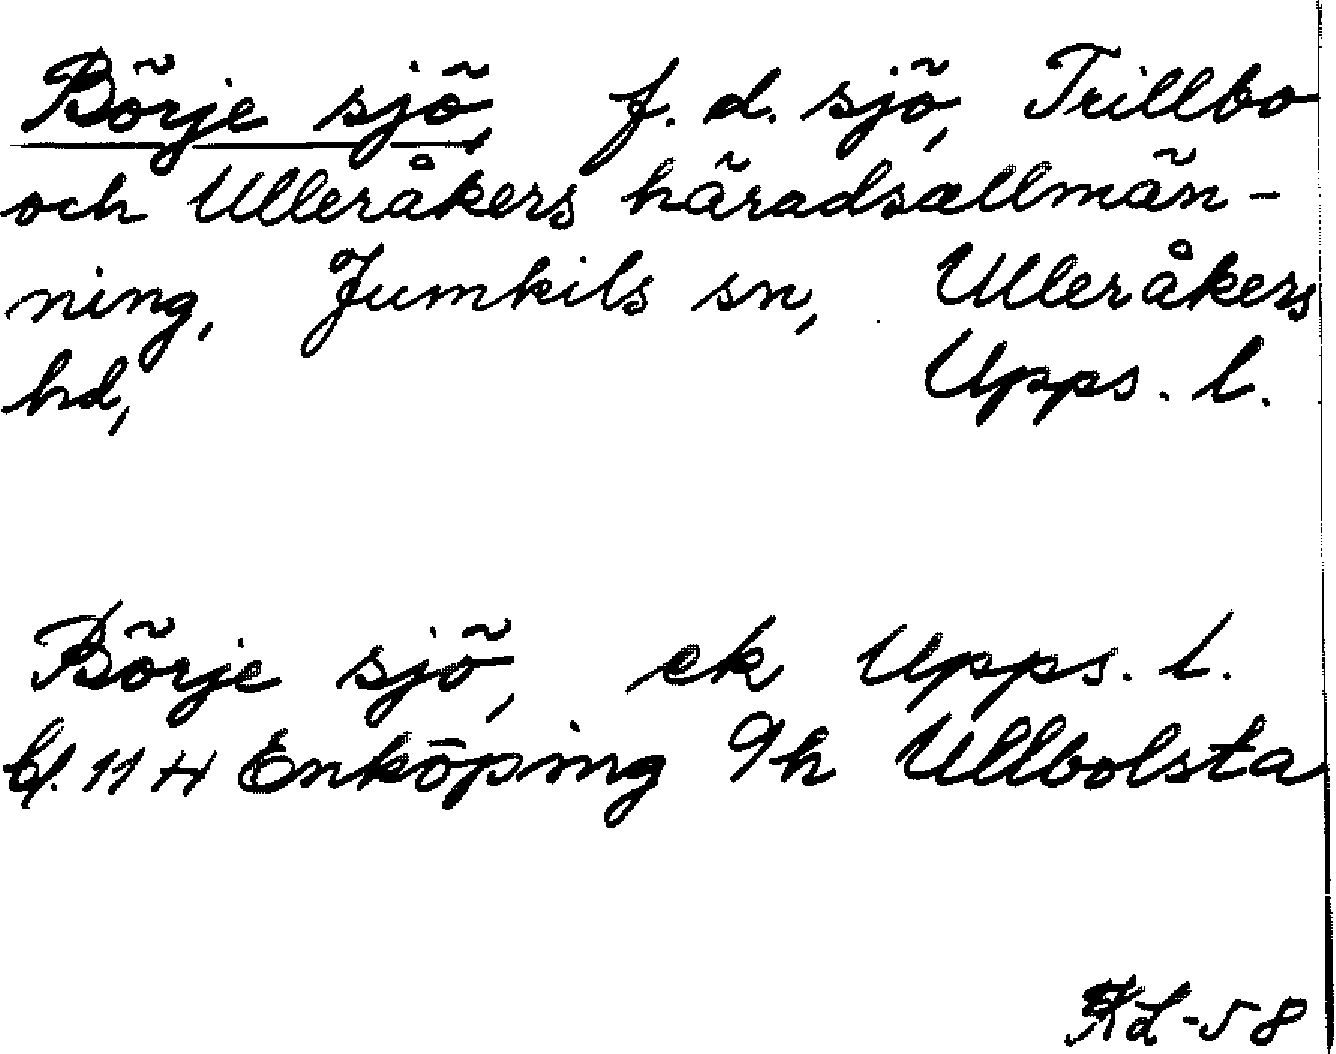 Börje sjö, f. d. sjö, Trillbo
och Ulleråkers häradsallmän-
ning, Jumkils sn, Ulleråkers
hd, Upps. l.
Börje sjö, ek Upps. l.
bl. 11 H Enköping 9h Ullbolsta
KL-58